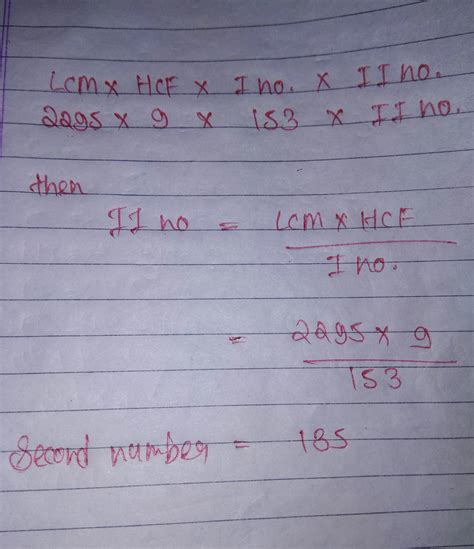 LCM x HCF x I no. x II no.
2295 x 9 x 153 x II no.
then
II no = LCM x HCF
I no.
= 2295 x 9
153
Second number = 135